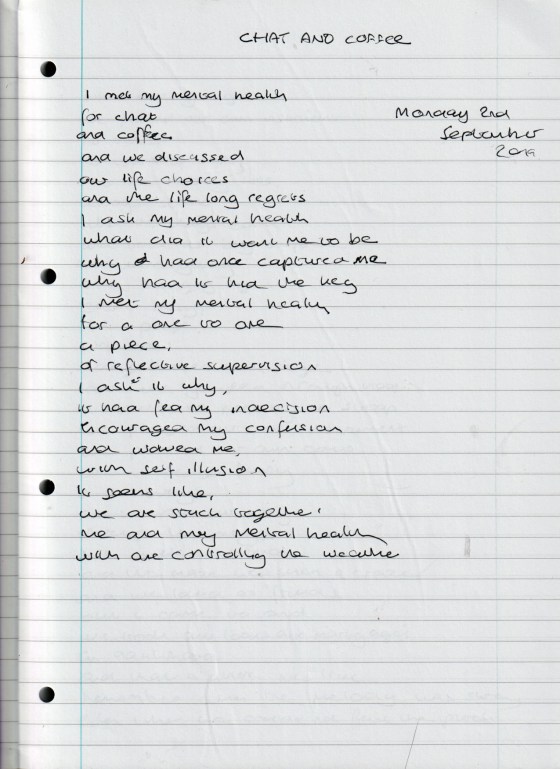 CHAT AND COFFEE
I met my mental health
for chat
Monday 2nd
and coffee
September
and we discussed
2019
our life choices
and the life long regrets
I ask my mental health
what did it want me to be
why had once captured me
why had it hid the key
I met my mental health
for a one to one
a piece,
of reflective supervision
I ask it why,
it had fed my indecision
Encouraged my confusion
and wowed me,
with self illusion
It seems like,
we are stuck together
me and my mental health
with one controlling the weather